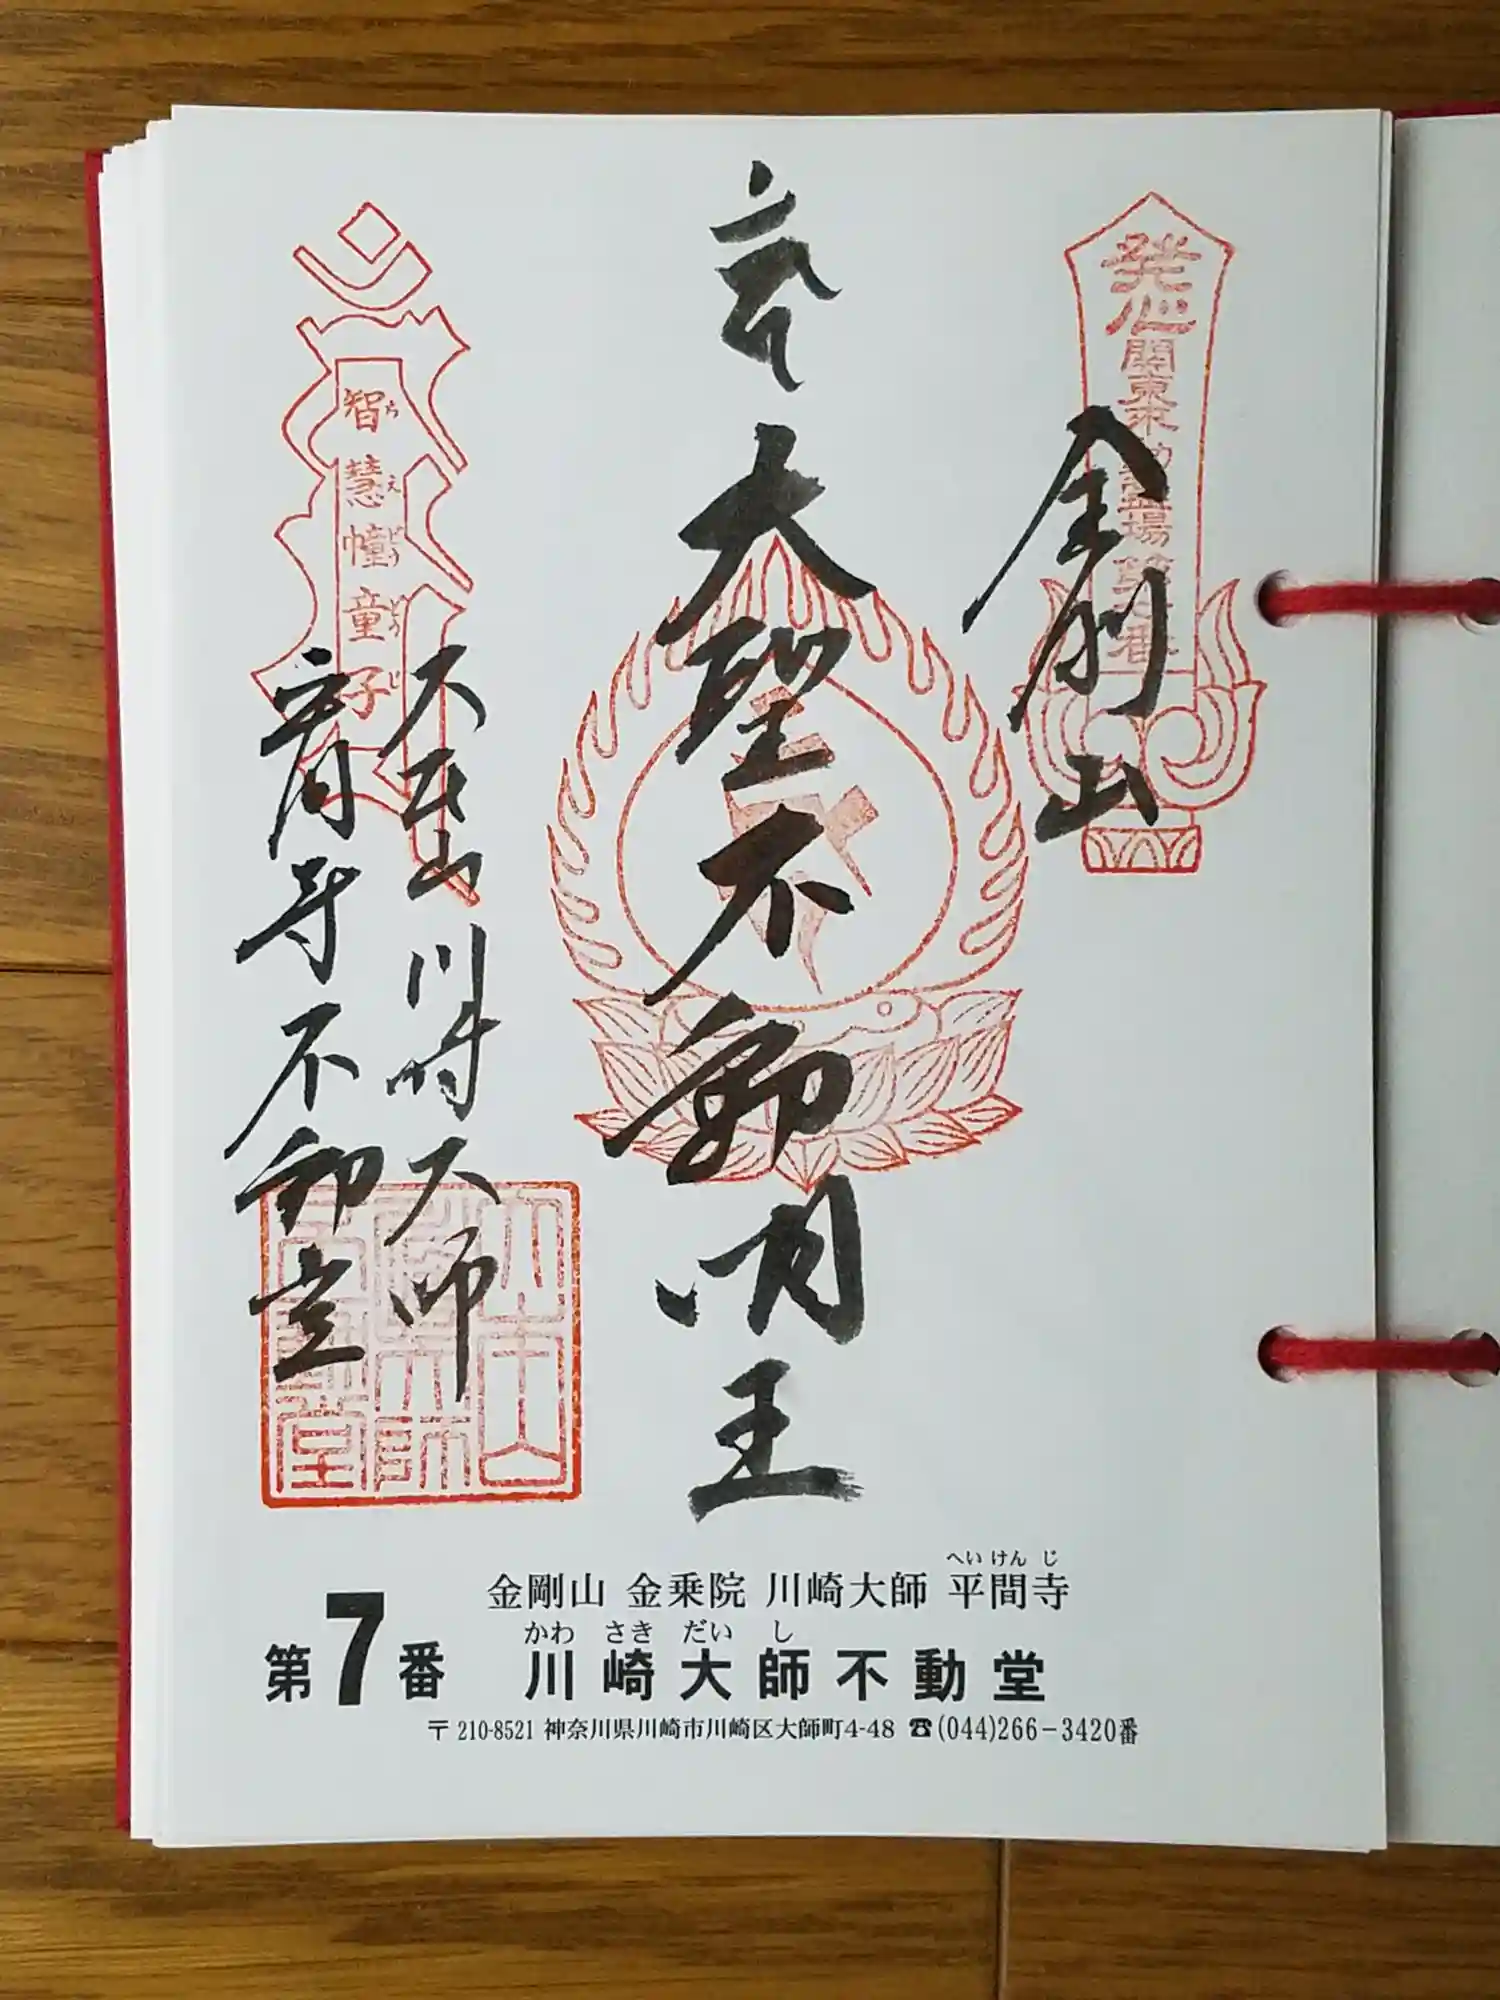 発心 関東三十六不動霊場 第七番
金剛山
大聖不動明王
智慧幢童子
ち え どう どう じ
大本山 川崎大師
不動堂
へい けん じ
金剛山 金乗院 川崎大師 平間寺
かわ さき だい し
第7番 川崎大師不動堂
〒210-8521 神奈川県川崎市川崎区大師町4-48 ☎(044)266-3420番